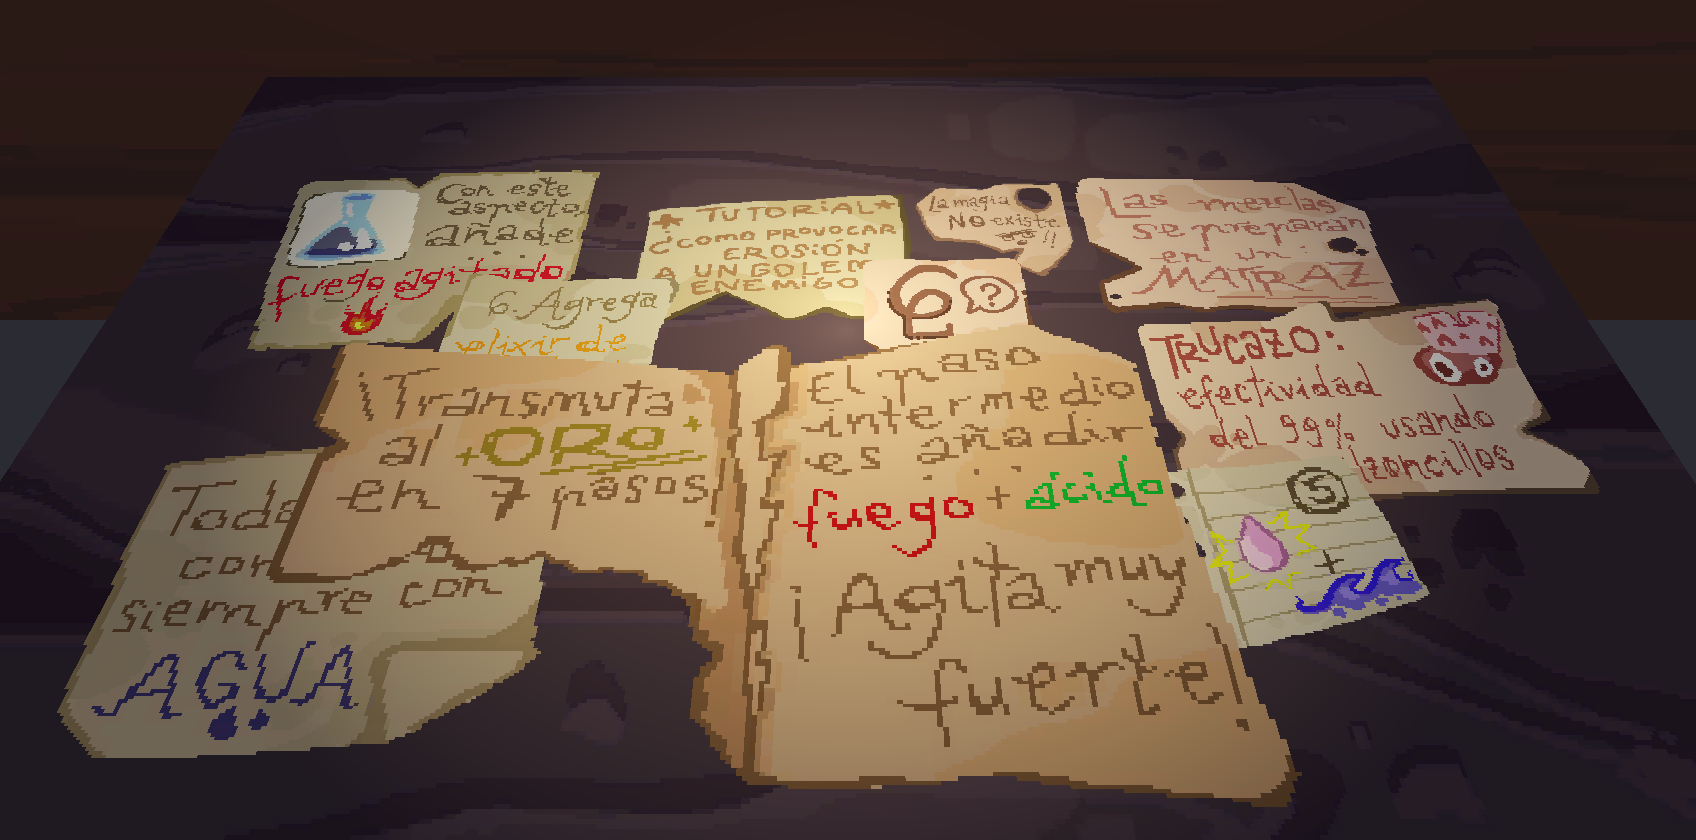 Con este
aspecto,
añade
fuego agitado
6. Agrega
elixir de
TUTORIAL
¿COMO PROVOCAR
EROSIÓN
A UN GOLEM
ENEMIGO
La magia
NO existe
!!
?
Las mezclas
se preparan
en un
MATRAZ
TRUCAZO:
efectividad
del 99% usando
lzoncillos
5
+
¡Transmuta
al ORO
en 7 pasos!
El paso
intermedio
es añadir
fuego + ácido
¡Agita muy
fuerte!
Toda
com
siempre con
AGUA